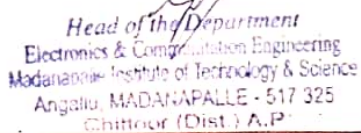 Head of the Department
Electronics & Communication Engineering
Madanapalle Institute of Technology & Science
Angallu, MADANAPALLE - 517 325
Chittoor (Dist.) A.P